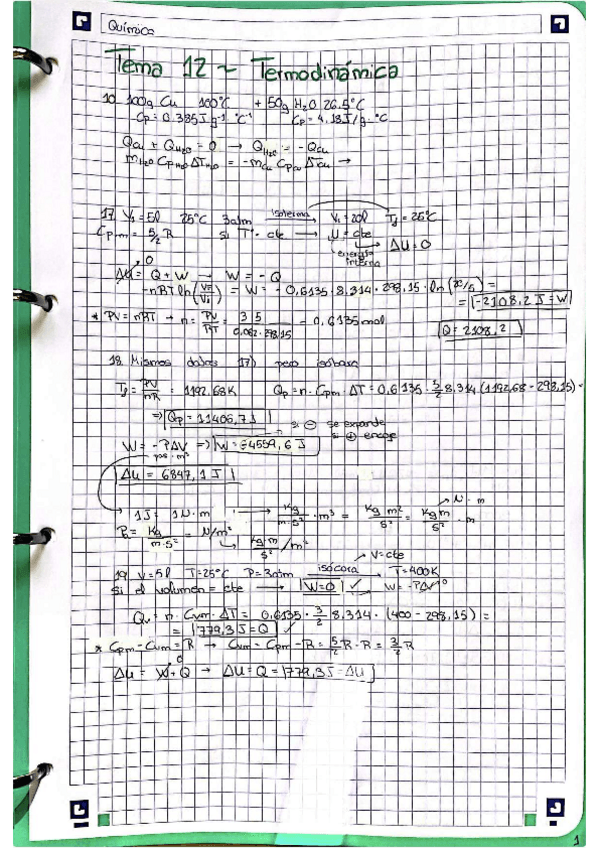 Química
Tema 12 ~ Termodinámica
10. 100g Cu 100°C + 50g H₂O 26.5°C
Cp = 0.385 J g⁻¹ °C⁻¹ Cp = 4.18 J/g·°C
Q_Cu + Q_H₂O = 0 → Q_H₂O = -Q_Cu
m_H₂O Cp_H₂O ΔT_H₂O = -m_Cu Cp_Cu ΔT_Cu →
17. V₁ = 5l 25°C 3atm isoterma → V₁ = 20l T_f = 25°C
Cp,m = 5/2 R si T = cte → U = cte
energía interna → ΔU = 0
0
ΔU = Q + W → W = -Q
-nRT ln(V_F/V_i) = W = -0,6135·8.314·298,15·ln(20/5) =
= -2108,2 J = W
* PV = nRT → n = PV/RT = 3 5/0.082·298,15 = 0,6135 mol
Q = 2108,2
18. Mismos datos 17) pero isobara
T_f = PV/nR = 1192.68K Q_p = n·Cpm·ΔT = 0,6135·5/2 8,314·(1192,68 - 298,15) =
⇒ Q_p = 11406,7 J
si ⊖ se expande
si ⊕ encoge
W = -PΔV ⇒ W = -4559,6 J
pas·m³
ΔU = 6847,1 J
1J = 1N·m → Kg/m·s² · m³ = Kg m²/s² = Kg m/s² · m
N · m
Pa = Kg/m·s² = N/m²
Kg·m/s² /m²
V = cte
19. V = 5l T = 25°C P = 3atm isócora → T = 400K
si el volumen = cte → W = 0 ✓ W = -PΔV⁰
Qv = n·Cvm·ΔT = 0,6135·3/2 8,314·(400 - 298,15) =
= 779,3 J = Q ✓
* Cpm - Cvm = R → Cvm = Cpm - R = 5/2 R - R = 3/2 R
0
ΔU = W + Q → ΔU = Q = 779,3J = ΔU
1